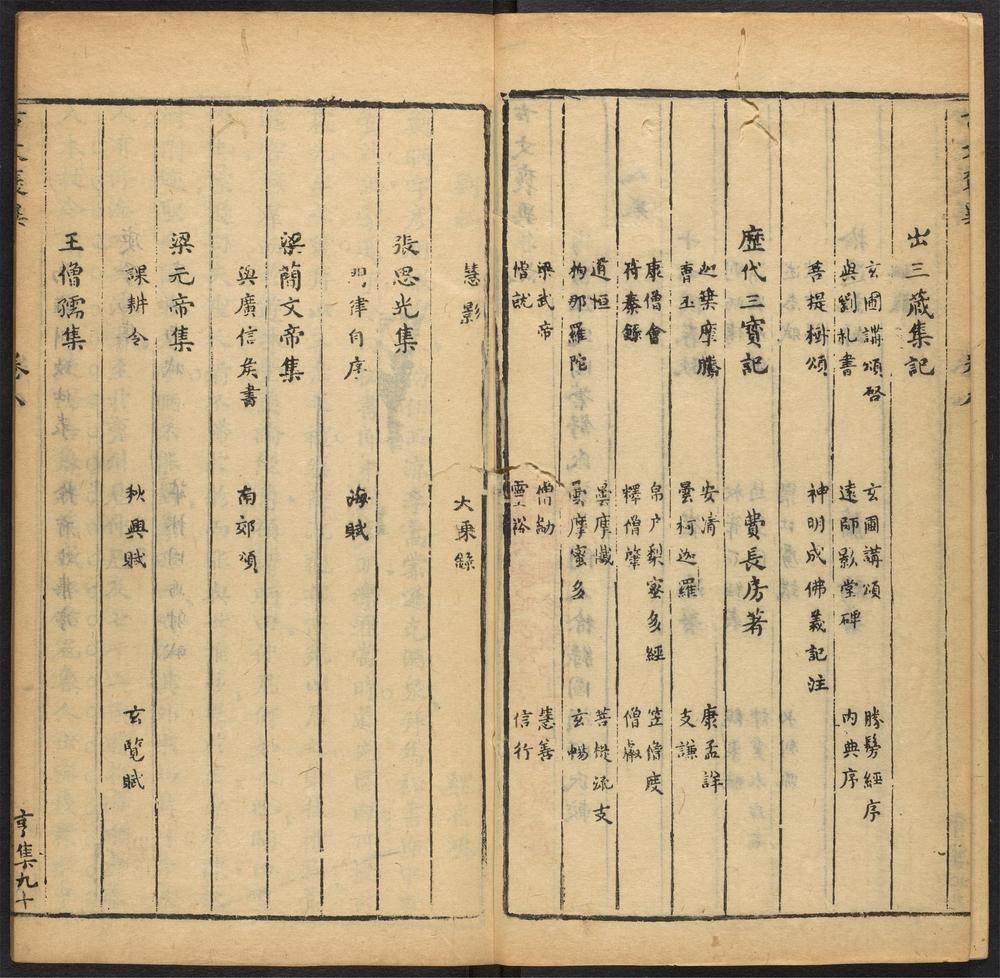 出三蔵集記
玄圃講頌啓 玄圃講頌 勝鬘經序
與劉札書 遠師影堂碑 內典序
菩提樹頌 神明成佛義記注
歷代三寳記 費長房著
迦葉摩騰 安清 康孟詳
曹丕 曇柯迦羅 支謙
康僧會 帛尸梨蜜多經 竺僧度
苻秦錄 釋僧肇 僧叡
道恒 曇摩讖 菩提流支
栒那羅陀 曇摩蜜多 玄暢
梁武帝 僧勔 慧善
僧就 靈裕 信行
慧影 大乘錄
張思光集
門律自序 海賦
梁蕳文帝集
與廣信矦書 南郊頌
梁元帝集
課耕令 秋興賦 玄覽賦
王僧孺集
卷八
亨集九十